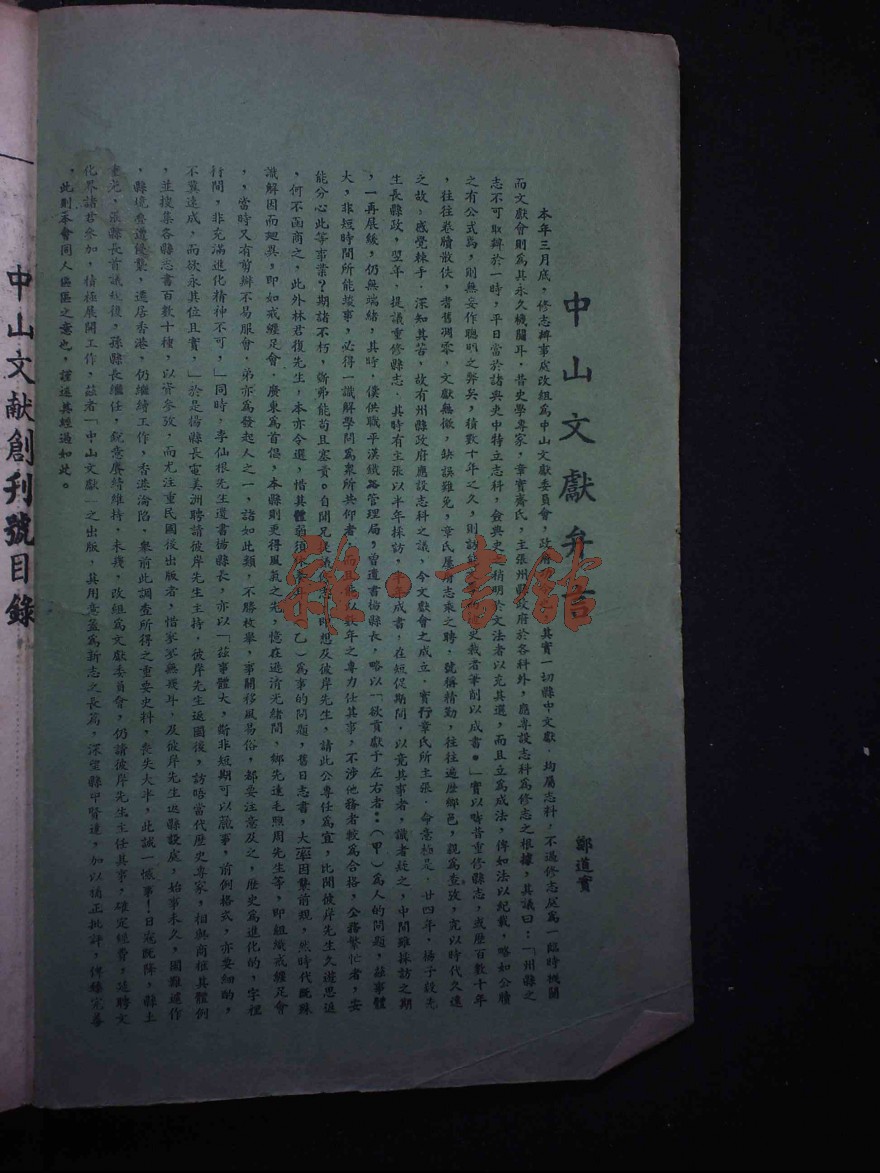 中山文獻弁言
鄭道實
本年三月底，修志辦事處改組為中山文獻委員會，政府 其實一切縣中文獻，均屬志科，不過修志處為一臨時機關
而文獻會則為其永久機關耳，昔史學專家，章實齋氏，主張州縣政府於各科外，應專設志科為修志之根據，其議曰：「州縣之
志不可取辦於一時，平日當於諸典吏中特立志科，僉典史 稍明於文法者以充其選，而且立為成法，俾如法以紀載，略如公牘
之有公式焉，則無妄作聰明之弊矣，積數十年之久，則訪 史裁者筆削以成書。」實以疇昔重修縣志，或歷百數十年
，往往卷牘散佚，耆舊凋零，文獻無徵，缺誤難免，章氏屢膺志乘之聘，號稱精勤，往往遍歷鄉邑，親為查攷，亦以時代久遠
之故，感覺棘手，深知其苦，故有州縣政府應設志科之議，今文獻會之成立，實行章氏所主張，命意極是，廿四年，楊子毅先
生長縣政，翌年，提議重修縣志，其時有主張以半年採訪，半年成書，在短促期間，以竟其事者，識者疑之，中間雖採訪之期
，一再展緩，仍無端緒，其時，僕供職平漢鐵路管理局，曾遺書楊縣長，略以「欲貢獻于左右者：（甲）為人的問題，茲事體
大，非短時間所能竣事，必得一識解學問為眾所共仰者， 以數年之專力任其事，不涉他務者較為合格，公務繁忙者，安
能分心此等事業？期諸不朽，斷弗能苟且塞責。自聞兄提議修志，即想及彼岸先生，請此公專任為宜，比聞彼岸先生久遊思返
，何不函商之，此外林君復先生，本亦合選，惜其體弱須 乙）為事的問題，舊日志書，大率因襲前規，然時代既殊
識解因而迥異，即如戒纏足會，廣東為首倡，本縣則更得風氣之先，憶在遜清光緒間，鄉先達毛照周先生等，即組織戒纏足會
，當時又有剪辮不易服會，弟亦為發起人之一，諸如此類，不勝枚舉，事關移風易俗，都要注意及之，歷史為進化的，字裡
行間，非充滿進化精神不可，」同時，李仙根先生遺書楊縣長，亦以「茲事體大，斷非短期可以蕆事，前例格式，亦要細酌，
不冀速成，而欲永其位且實，」於是楊縣長電美洲聘請彼岸先生主持，彼岸先生返國後，訪晤當代歷史專家，相與商榷具體例
，並搜集各縣志書百數十種，以資參攷，而尤注重民國後出版者，惜寥寥無幾耳，及彼岸先生返縣設處，始事未久，國難遽作
，縣境疊遭侵襲，遷居香港，仍繼續工作，香港淪陷，舉前此調查所得之重要史料，喪失大半，此誠一憾事！日寇既降，縣土
重光，張縣長首議恢復，孫縣長繼任，銳意賡續維持，未幾，改組為文獻委員會，仍請彼岸先生主任其事，確定經費，延聘文
化界諸君參加，積極展開工作，茲者「中山文獻」之出版，其用意蓋為新志之長篇，深望縣中賢達，加以補正批評，俾臻完善
，此則本會同人區區之意也，謹述其經過如此。
中山文献創刊號目錄
雜·書館